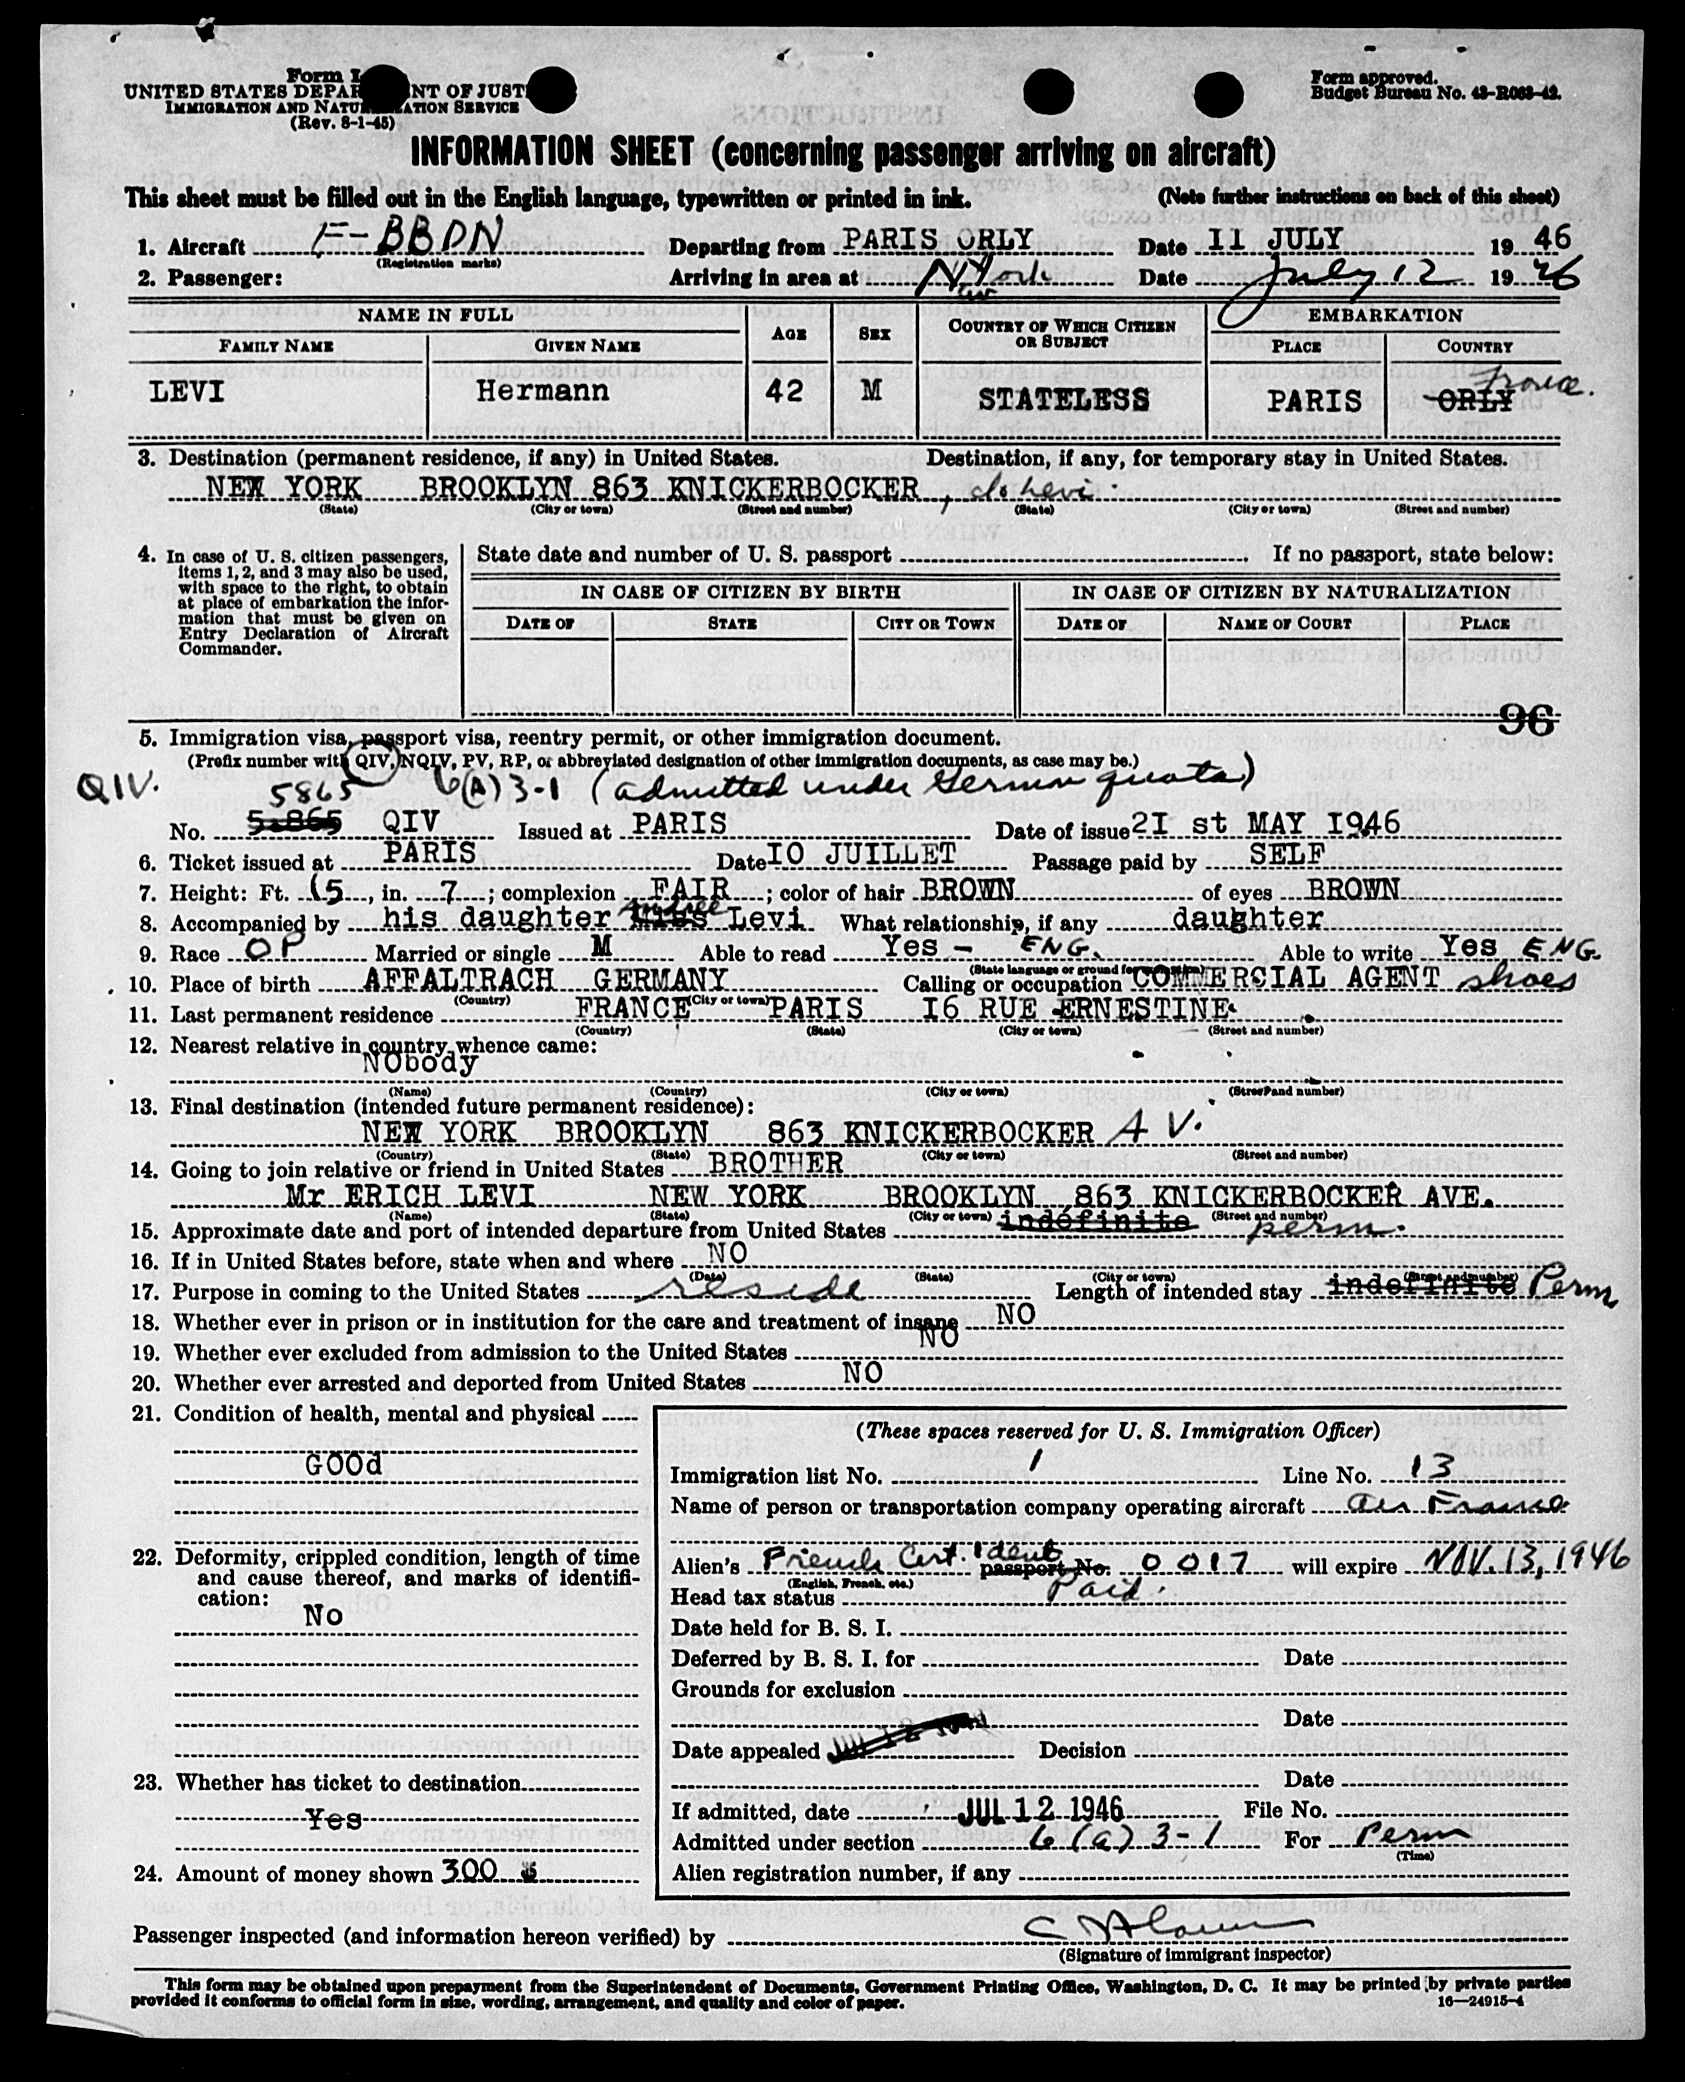 Form I
UNITED STATES DEPAR NT OF JUST
IMMIGRATION AND NATU ATION SERVICE
(Rev. 8-1-45)
Form approved.
Budget Bureau No. 43-R063-42.
INFORMATION SHEET (concerning passenger arriving on aircraft)
This sheet must be filled out in the English language, typewritten or printed in ink. (Note further instructions on back of this sheet)
1. Aircraft F-BBDN Departing from PARIS ORLY Date II JULY 19 46
(Registration marks)
2. Passenger: Arriving in area at N York Date July 12 19 46
NAME IN FULL AGE SEX COUNTRY OF WHICH CITIZEN OR SUBJECT EMBARKATION
FAMILY NAME GIVEN NAME PLACE COUNTRY
LEVI Hermann 42 M STATELESS PARIS ORLY France.
3. Destination (permanent residence, if any) in United States. Destination, if any, for temporary stay in United States.
NEW YORK BROOKLYN 863 KNICKERBOCKER, c/o Levi.
(State) (City or town) (Street and number) (State) (City or town) (Street and number)
4. In case of U. S. citizen passengers, items 1, 2, and 3 may also be used, with space to the right, to obtain at place of embarkation the information that must be given on Entry Declaration of Aircraft Commander.
State date and number of U. S. passport If no passport, state below:
IN CASE OF CITIZEN BY BIRTH IN CASE OF CITIZEN BY NATURALIZATION
DATE OF STATE CITY OR TOWN DATE OF NAME OF COURT PLACE
96
5. Immigration visa, passport visa, reentry permit, or other immigration document.
(Prefix number with QIV, NQIV, PV, RP, or abbreviated designation of other immigration documents, as case may be.)
QIV. 5865 6(A)3-1 (admitted under German quota)
No. 5.865 QIV Issued at PARIS Date of issue 2I st MAY I946
6. Ticket issued at PARIS Date IO JUILLET Passage paid by SELF
7. Height: Ft. 5, in. 7; complexion FAIR; color of hair BROWN of eyes BROWN
8. Accompanied by his daughter Andree Levi What relationship, if any daughter
9. Race OP Married or single M Able to read Yes - ENG. Able to write Yes ENG.
(State language or ground for
10. Place of birth AFFALTRACH GERMANY Calling or occupation COMMERCIAL AGENT shoes
(Country) (City or town)
11. Last permanent residence FRANCE PARIS I6 RUE ERNESTINE
(Country) (State) (City or town) (Street and number)
12. Nearest relative in country whence came:
NObody
(Name) (Country) (City or town) (Street and number)
13. Final destination (intended future permanent residence):
NEW YORK BROOKLYN 863 KNICKERBOCKER AV.
(Country) (State) (City or town) (Street and number)
14. Going to join relative or friend in United States BROTHER
Mr ERICH LEVI NEW YORK BROOKLYN 863 KNICKERBOCKER AVE.
(Name) (State) (City or town) (Street and number)
15. Approximate date and port of intended departure from United States indéfinite perm.
16. If in United States before, state when and where NO
(Date) (State) (City or town) (Street and number)
17. Purpose in coming to the United States reside Length of intended stay indefinite Perm
18. Whether ever in prison or in institution for the care and treatment of insane NO
19. Whether ever excluded from admission to the United States NO
20. Whether ever arrested and deported from United States NO
21. Condition of health, mental and physical
GOOd
22. Deformity, crippled condition, length of time and cause thereof, and marks of identification:
No
23. Whether has ticket to destination
Yes
24. Amount of money shown 300 $
(These spaces reserved for U. S. Immigration Officer)
Immigration list No. 1 Line No. 13
Name of person or transportation company operating aircraft Air France
Alien's French Cert. Ident passport No. 0017 will expire NOV. 13, 1946
(English, French, etc.)
Head tax status Paid.
Date held for B. S. I.
Deferred by B. S. I. for Date
Grounds for exclusion
Date
Date appealed Decision
Date
If admitted, date JUL 12 1946 File No.
Admitted under section 6(a)3-1 For Perm
(Time)
Alien registration number, if any
Passenger inspected (and information hereon verified) by
(Signature of immigrant inspector)
This form may be obtained upon prepayment from the Superintendent of Documents, Government Printing Office, Washington, D. C. It may be printed by private parties
provided it conforms to official form in size, wording, arrangement, and quality and color of paper. 16—24915-4